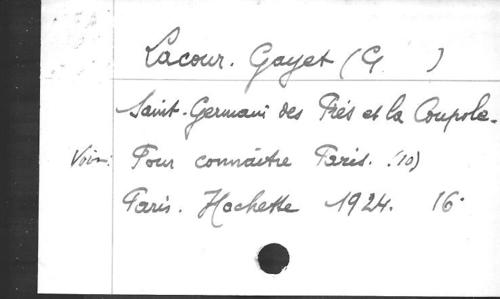 Lacour-Gayet (G )
Saint-Germain des Prés et la Coupole.
Voir: Pour connaître Paris. (10)
Paris. Hachette 1924. 16°